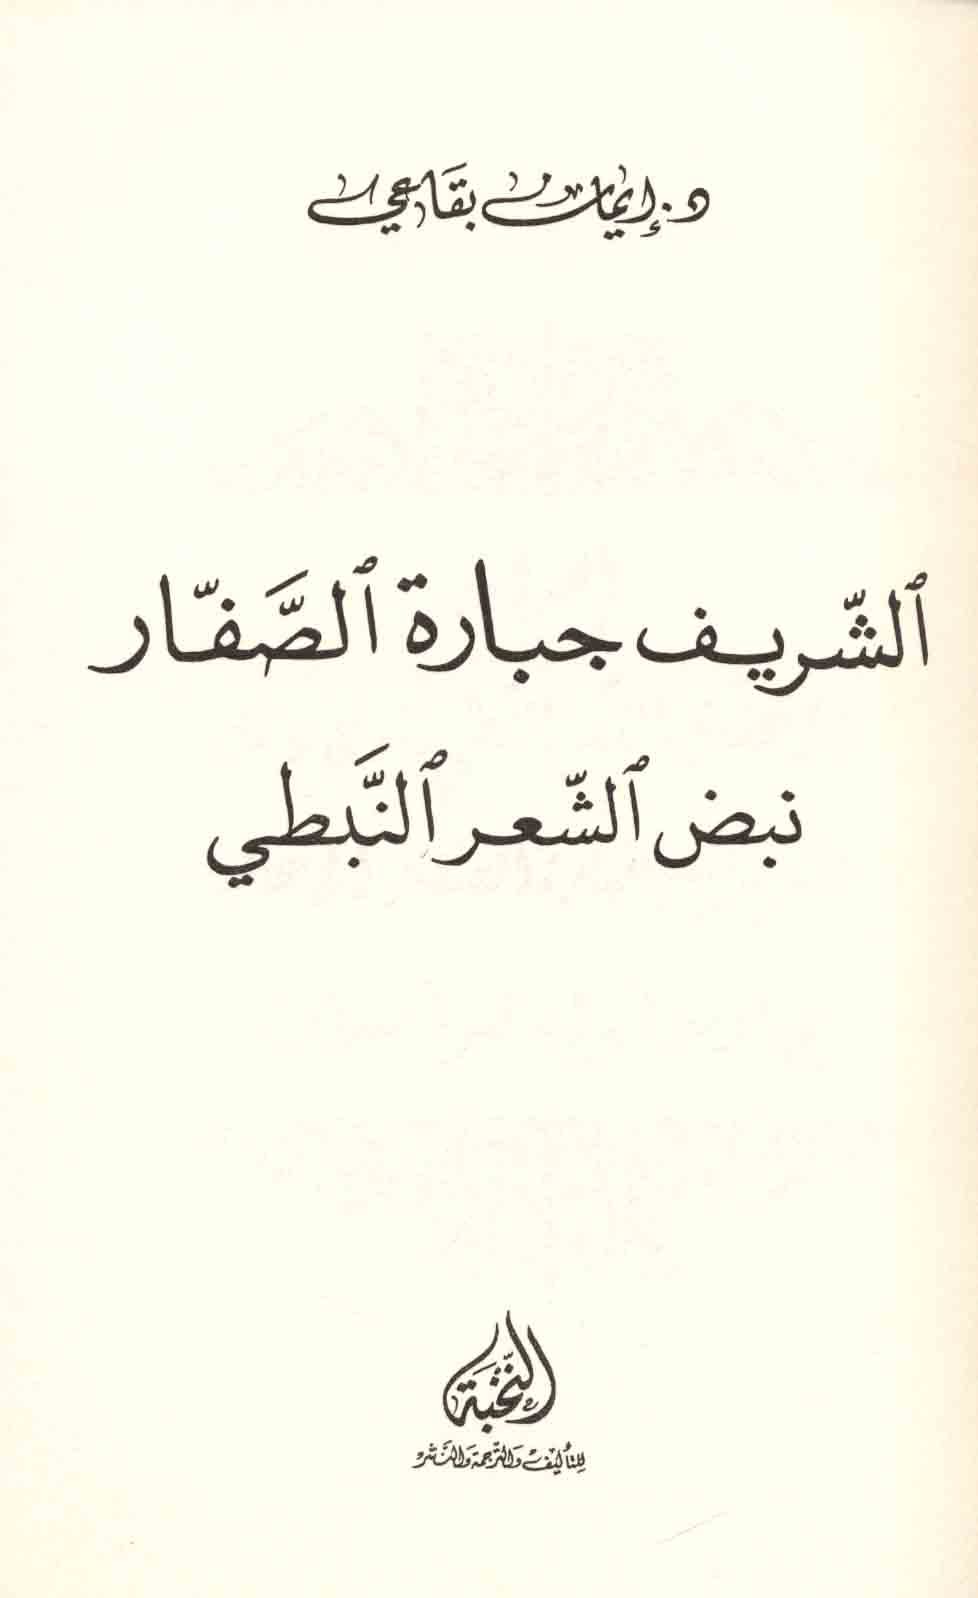 د. إيمان بقاعي
ٱلشّريف جبارة ٱلصَّفّار
نبض ٱلشّعر ٱلنَّبطي
النّخبة
للتأليف والتّرجمة والنّشر